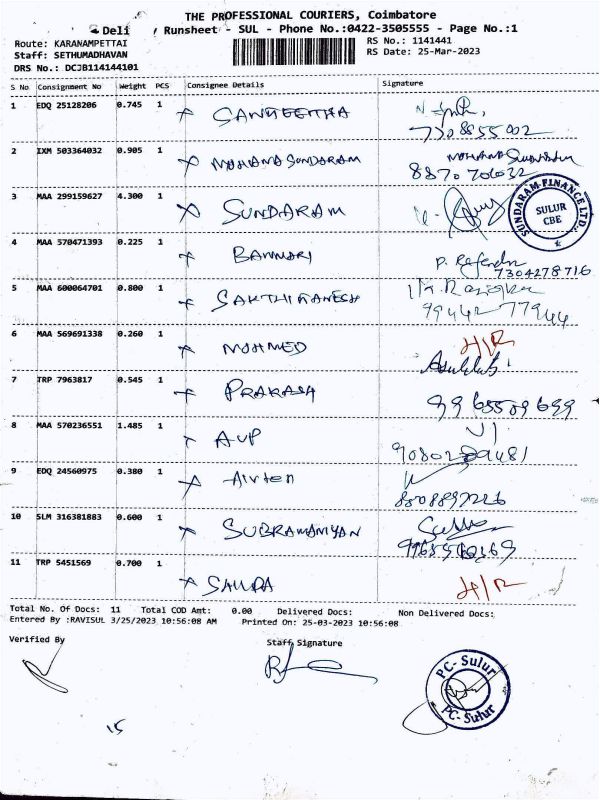 THE PROFESSIONAL COURIERS, Coimbatore
Deli Runsheet - SUL - Phone No.:0422-3505555 - Page No.:1
Route: KARANAMPETTAI RS No.: 1141441
Staff: SETHUMADHAVAN RS Date: 25-Mar-2023
DRS No.: DCJB114144101
S No Consignment No Weight PCS Consignee Details Signature
1 EDQ 25128206 0.745 1 SANGEETHA
7708855002
2 IXM 503364032 0.905 1 MOHANA SUNDARAM
8870706032
3 MAA 299159627 4.300 1 SUNDARAM
SUNDARAM FINANCE LTD.,
SULUR
CBE
4 MAA 570471393 0.225 1 BANNARI P. Rajendra
7304278716
5 MAA 600064701 0.800 1 SAKTHI GANESH
99442 77944
6 MAA 569691338 0.260 1 MOHMED H/R
7 TRP 7963817 0.545 1 PRAKASH
8 MAA 570236551 1.485 1 AVP
9 EDQ 24560975 0.380 1 Airten
10 SLM 316381883 0.600 1 SUBRAMANIYAN
11 TRP 5451569 0.700 1 H/R
Total No. Of Docs: 11 Total COD Amt: 0.00 Delivered Docs: Non Delivered Docs:
Entered By :RAVISUL 3/25/2023 10:56:08 AM Printed On: 25-03-2023 10:56:08
Verified By Staff Signature
PC- Sulur
PC- Sulur
15